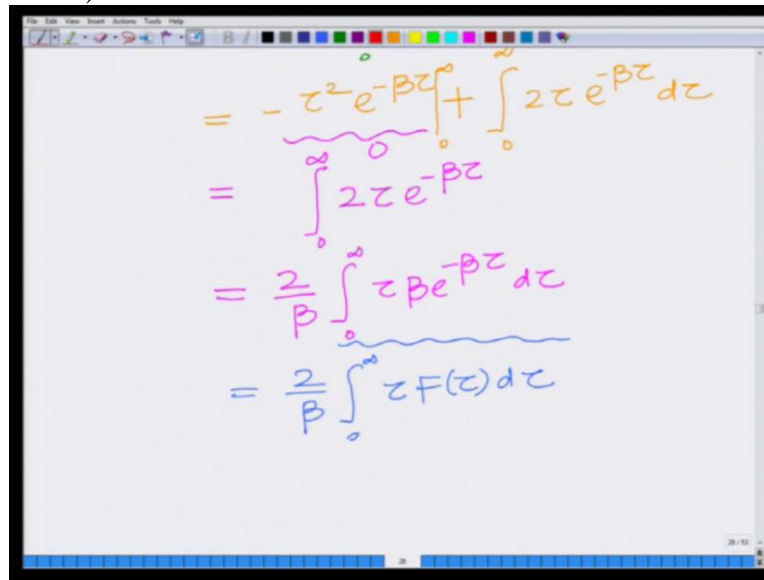 File Edit View Insert Actions Tools Help
B I
0
= - τ² e^{-βτ} |_0^∞ + ∫_0^∞ 2τ e^{-βτ} dτ
0
= ∫_0^∞ 2τ e^{-βτ}
= 2/β ∫_0^∞ τ β e^{-βτ} dτ
= 2/β ∫_0^∞ τ F(τ) dτ
28 / 53
28